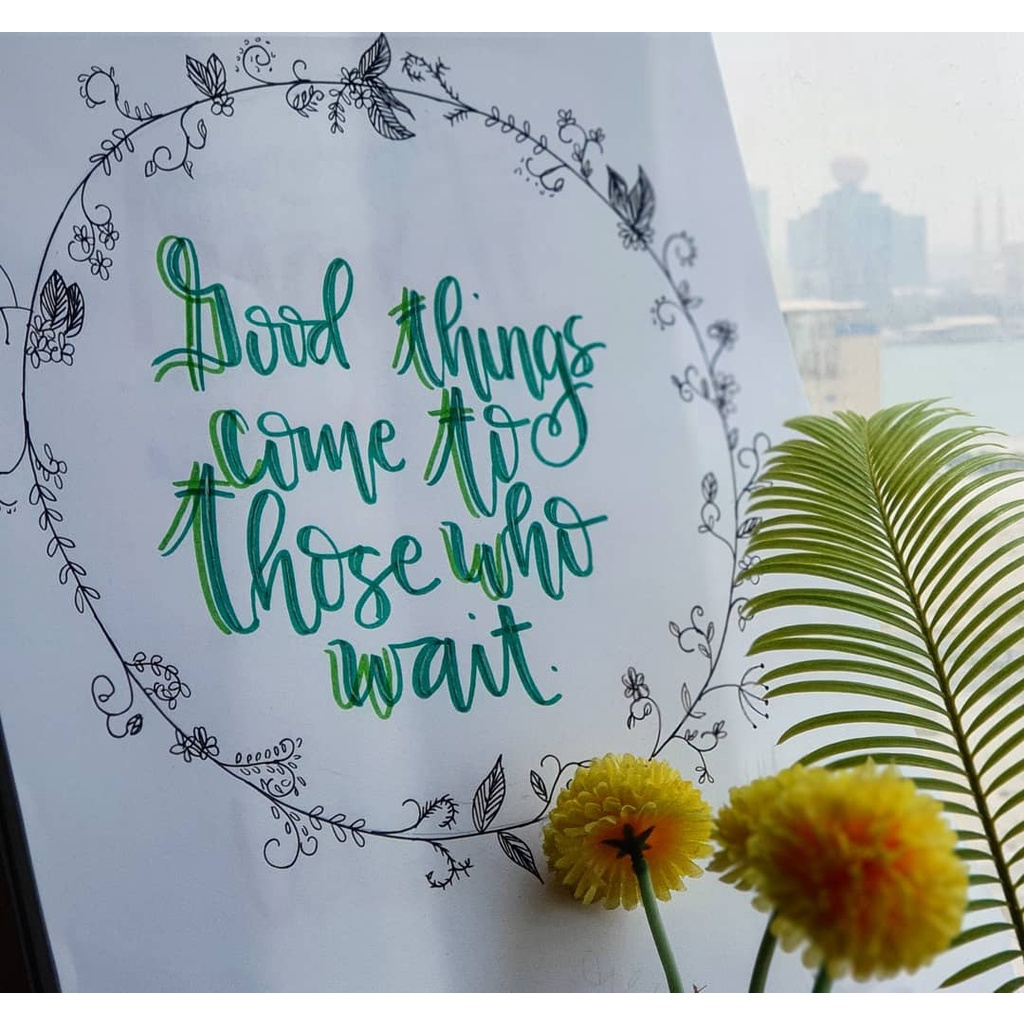 Good things
come to
those who
wait.